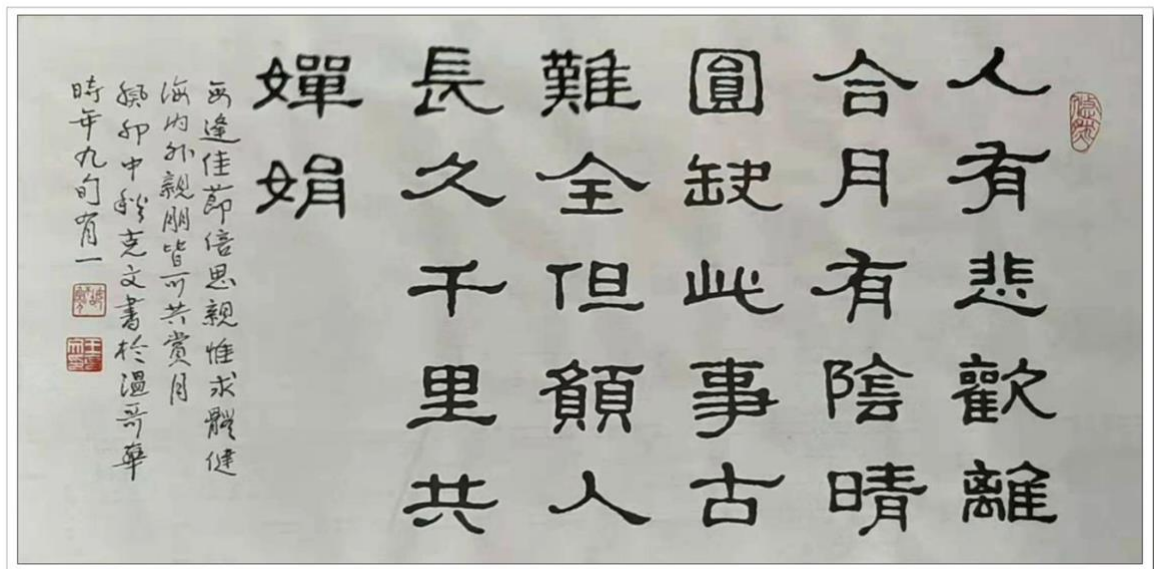 人有悲歡離
合月有陰晴
圓缺此事古
難全但願人
長久千里共
嬋娟
每逢佳節倍思親惟求體健
海內外親朋皆可共賞月
癸卯中秋克文書於溫哥華
時年九旬有一